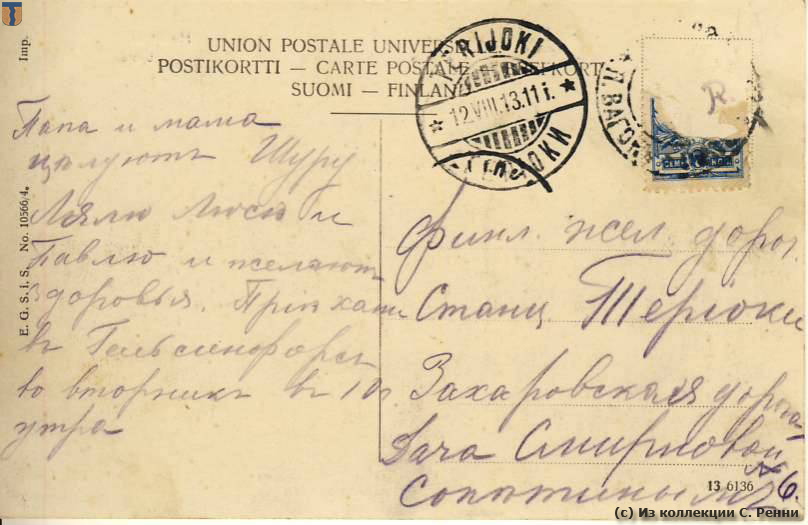 Imp.
UNION POSTALE UNIVERSELLE
POSTIKORTTI — CARTE POSTALE — POSTKORT
SUOMI — FINLAND
TERIJOKI
12.VIII.13.11 i.
СЕМЬ КОП.
R.
E. G. S. i. S. No. 10566/4.
Папа и мама
цѣлуютъ Шуру
Лялю Люсю и
Павлю и желают
здоровья. Прiѣхали
въ Гельсингфорсъ
во вторникъ въ 10 ч
утра
Финл. жел. дорог.
Станц Терiоки
Захаровская дорога
Дача Смирновой
№ 6.
13 6136
(c) Из коллекции С. Ренни